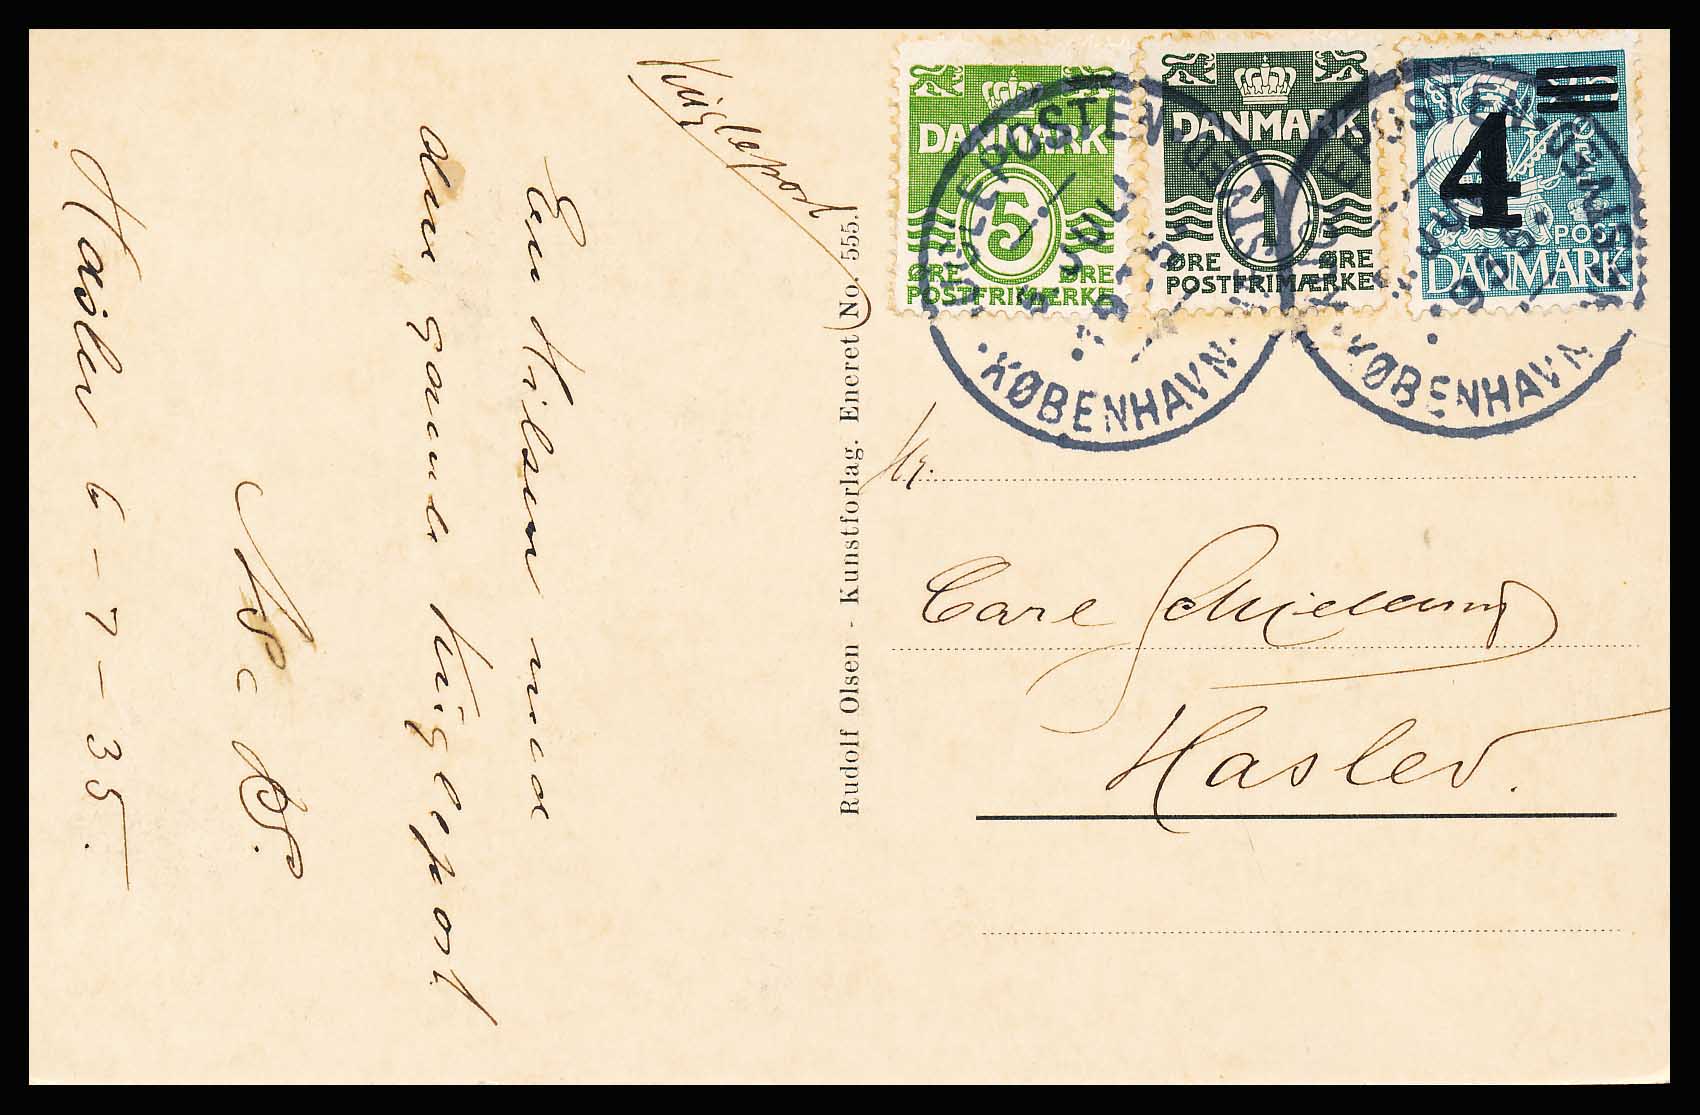 Kuglepost
En Hilsen med
den gamle Kuglepost
Haslev 6-7-35.
Rudolf Olsen - Kunstforlag. Eneret No. 555.
DANMARK
5
ØRE ØRE
POSTFRIMÆRKE
DANMARK
1
ØRE ØRE
POSTFRIMÆRKE
4
25
ØRE
POST
DANMARK
KUGLEPOSTEN
KØBENHAVN
KUGLEPOSTEN
KØBENHAVN
Hr.
Carl
Haslev.